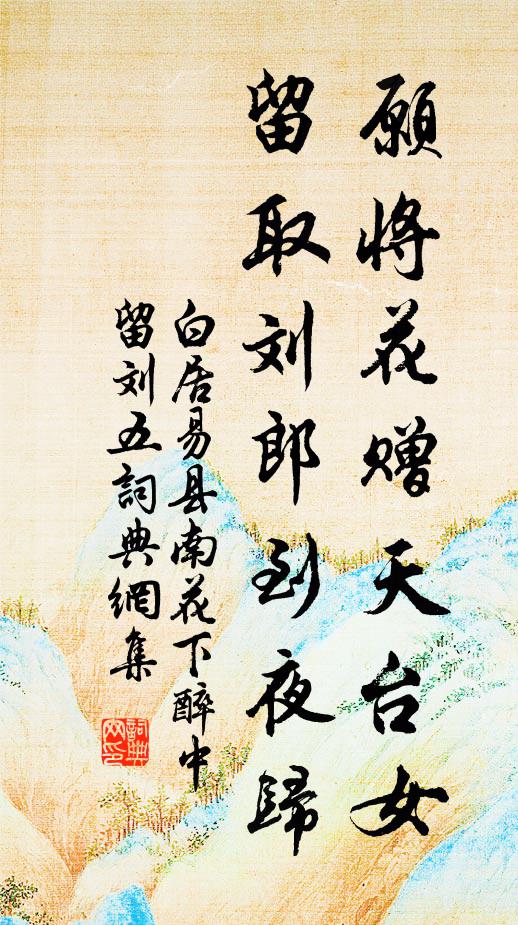 願将花赠天台女
留取刘郎到夜歸
白居易县南花下醉中
留刘五詞典網集
詞典网印